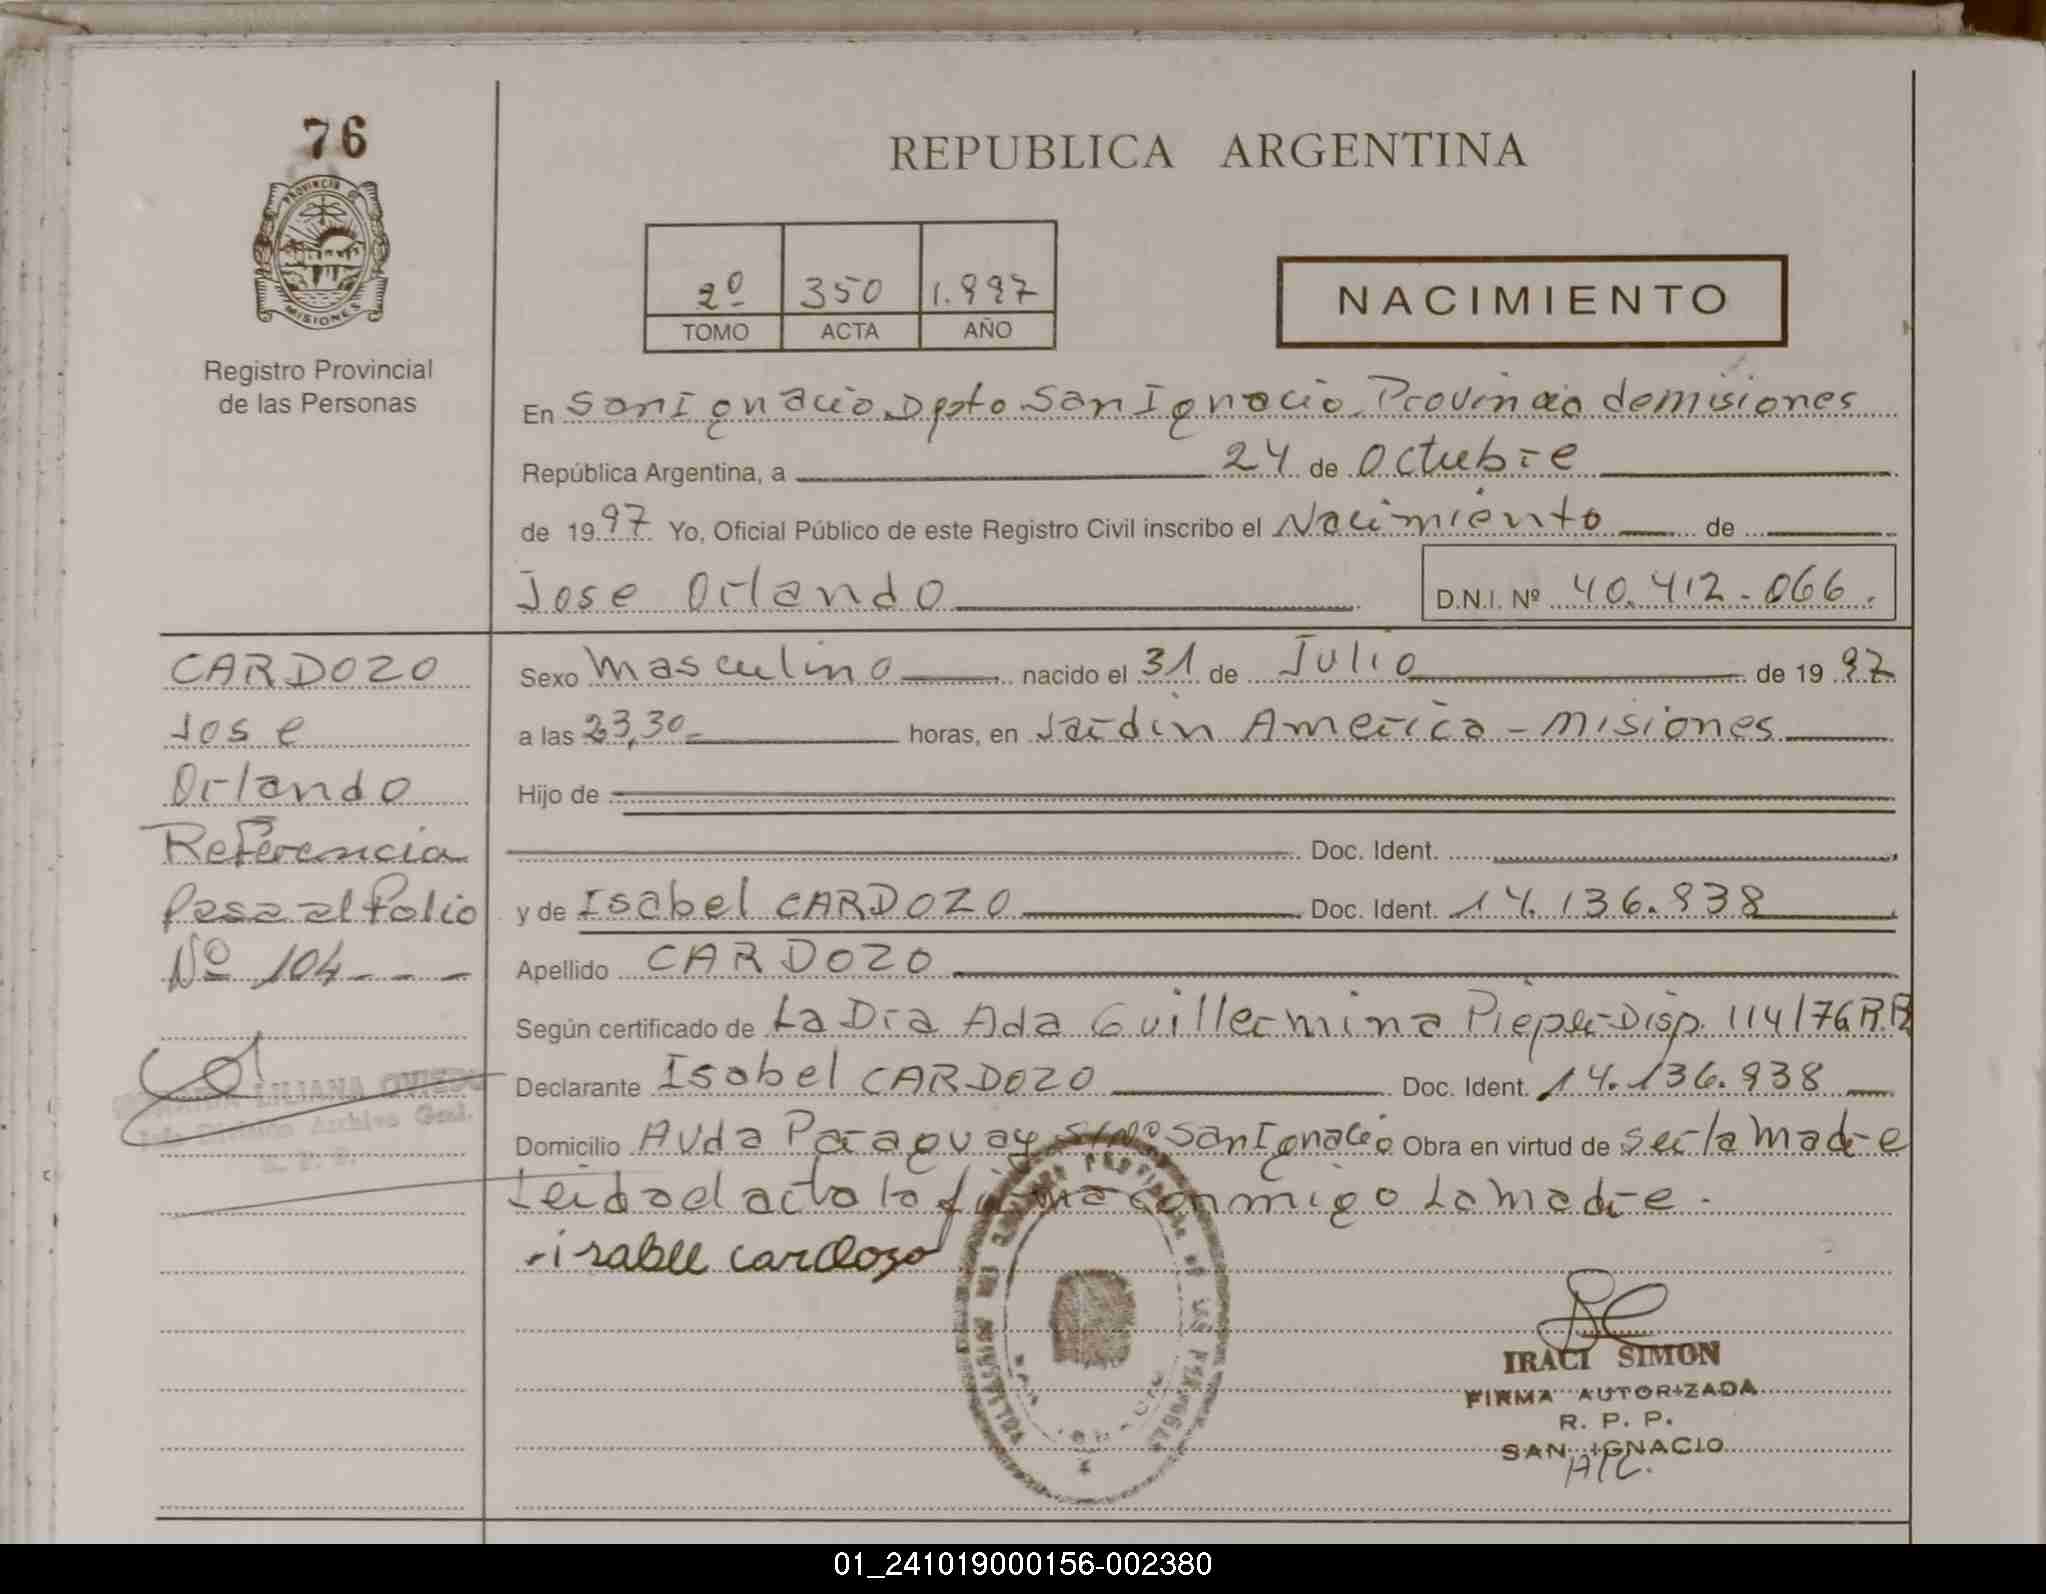 76
PROVINCIA DE
MISIONES
Registro Provincial
de las Personas
REPUBLICA ARGENTINA
2º 350 1.997
TOMO ACTA AÑO
NACIMIENTO
En San Ignacio Dpto San Ignacio Provincia de misiones
República Argentina, a 24 de Octubre
de 1997 Yo, Oficial Público de este Registro Civil inscribo el Nacimiento de
Jose Orlando D.N.I. Nº 40.412.066.
CARDOZO
Jose
Orlando
Referencia
Pasa al Folio
Nº 104 - - -
LILIANA OVIEDO
División Archivo Gral.
Sexo masculino nacido el 31 de Julio de 1997
a las 23,30 horas, en Jardin America - misiones
Hijo de
Doc. Ident.
y de Isabel CARDOZO Doc. Ident. 14.136.938
Apellido CARDOZO
Según certificado de La Dra Ada Guillermina Pieper Disp. 114/76 R.P.
Declarante Isabel CARDOZO Doc. Ident. 14.136.938
Domicilio Avda Paraguay S/Nº San Ignacio Obra en virtud de ser la madre
Leida el acta la firma conmigo La madre.
isabel cardozo
IRACI SIMON
FIRMA AUTORIZADA
R. P. P.
SAN IGNACIO
01_241019000156-002380